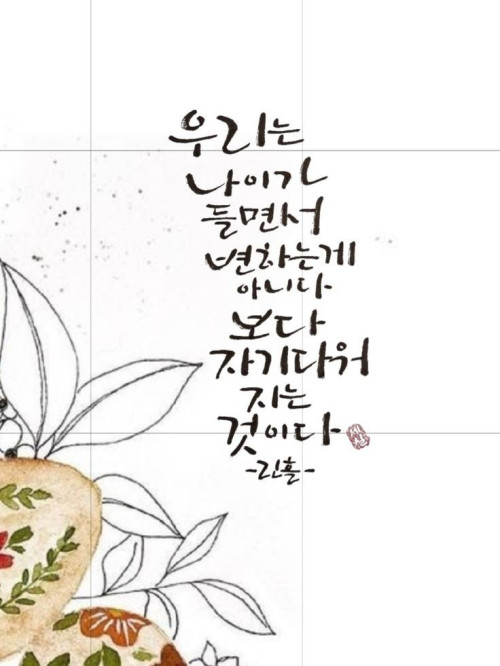 우리는
나이가
들면서
변하는게
아니다
보다
자기다워
지는
것이다
-린홀-